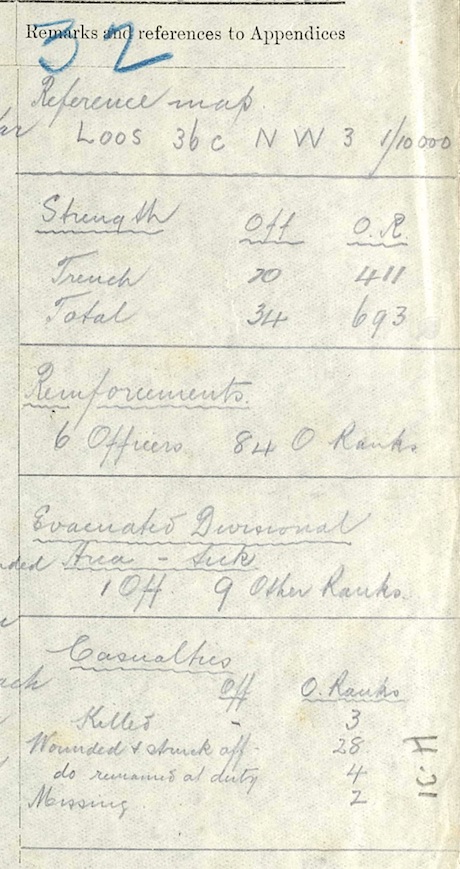 Remarks and references to Appendices
32
Reference map.
LOOS 36c N W 3 1/10000
Strength Off O.R.
Trench 20 411
Total 34 693
Reinforcements.
6 Officers 84 O Ranks
Evacuated Divisional
Area - Sick
1 Off. 9 Other Ranks.
Casualties
Off O. Ranks
Killed - 3
Wounded & struck off - 28
do remained at duty 4
Missing. 2